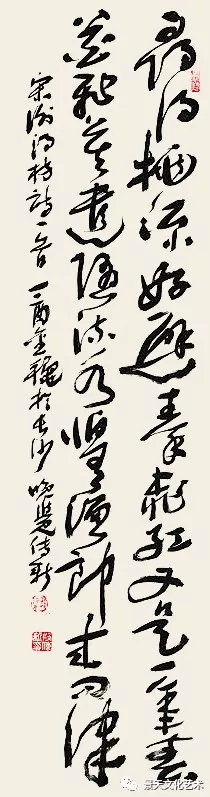 尋得桃源好避秦桃紅又是一年春
花飛莫遣隨流水怕有漁郎來問津
宋謝枋得詩一首丁酉金龝於長沙
景天文化艺术